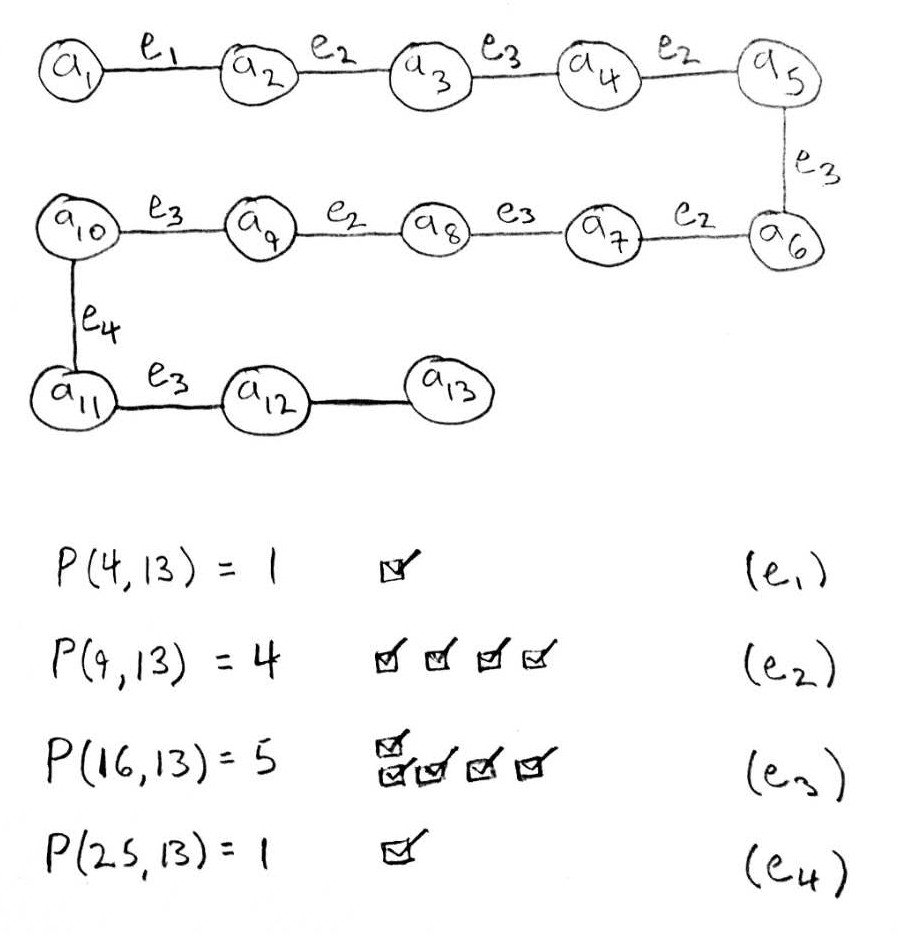 a₁ e₁ a₂ e₂ a₃ e₃ a₄ e₂ a₅
e₃
a₁₀ e₃ a₉ e₂ a₈ e₃ a₇ e₂ a₆
e₄
a₁₁ e₃ a₁₂ a₁₃
P(4,13) = 1 ☑ (e₁)
P(9,13) = 4 ☑ ☑ ☑ ☑ (e₂)
P(16,13) = 5 ☑ ☑ ☑ ☑ ☑ (e₃)
P(25,13) = 1 ☑ (e₄)